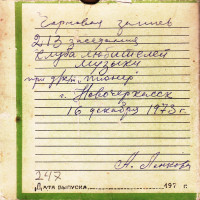 Черновая запись
213 заседания
Клуба любителей
музыки
при ДКП "Пионер"
г. Новочеркасск
16 декабря 1973 г.
А.
247
Дата выпуска 197 г.